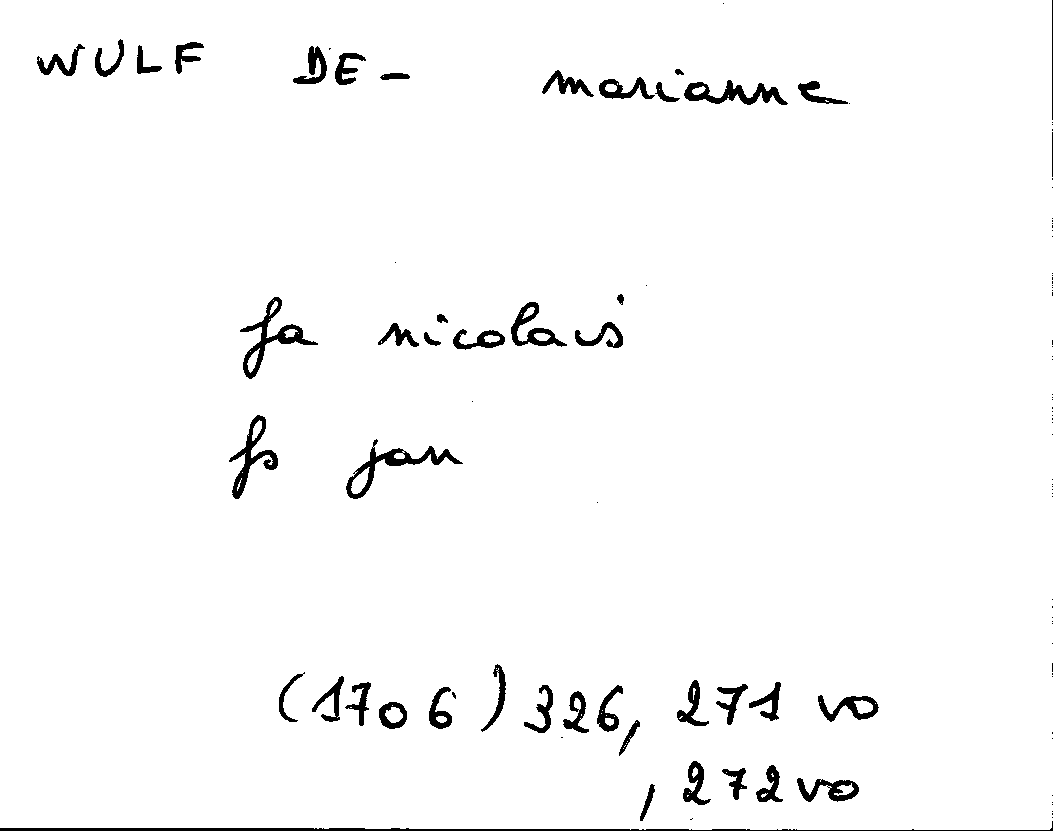 WULF DE- marianne
fa nicolais
fs jan
(1706) 326, 271 vo
, 272 vo